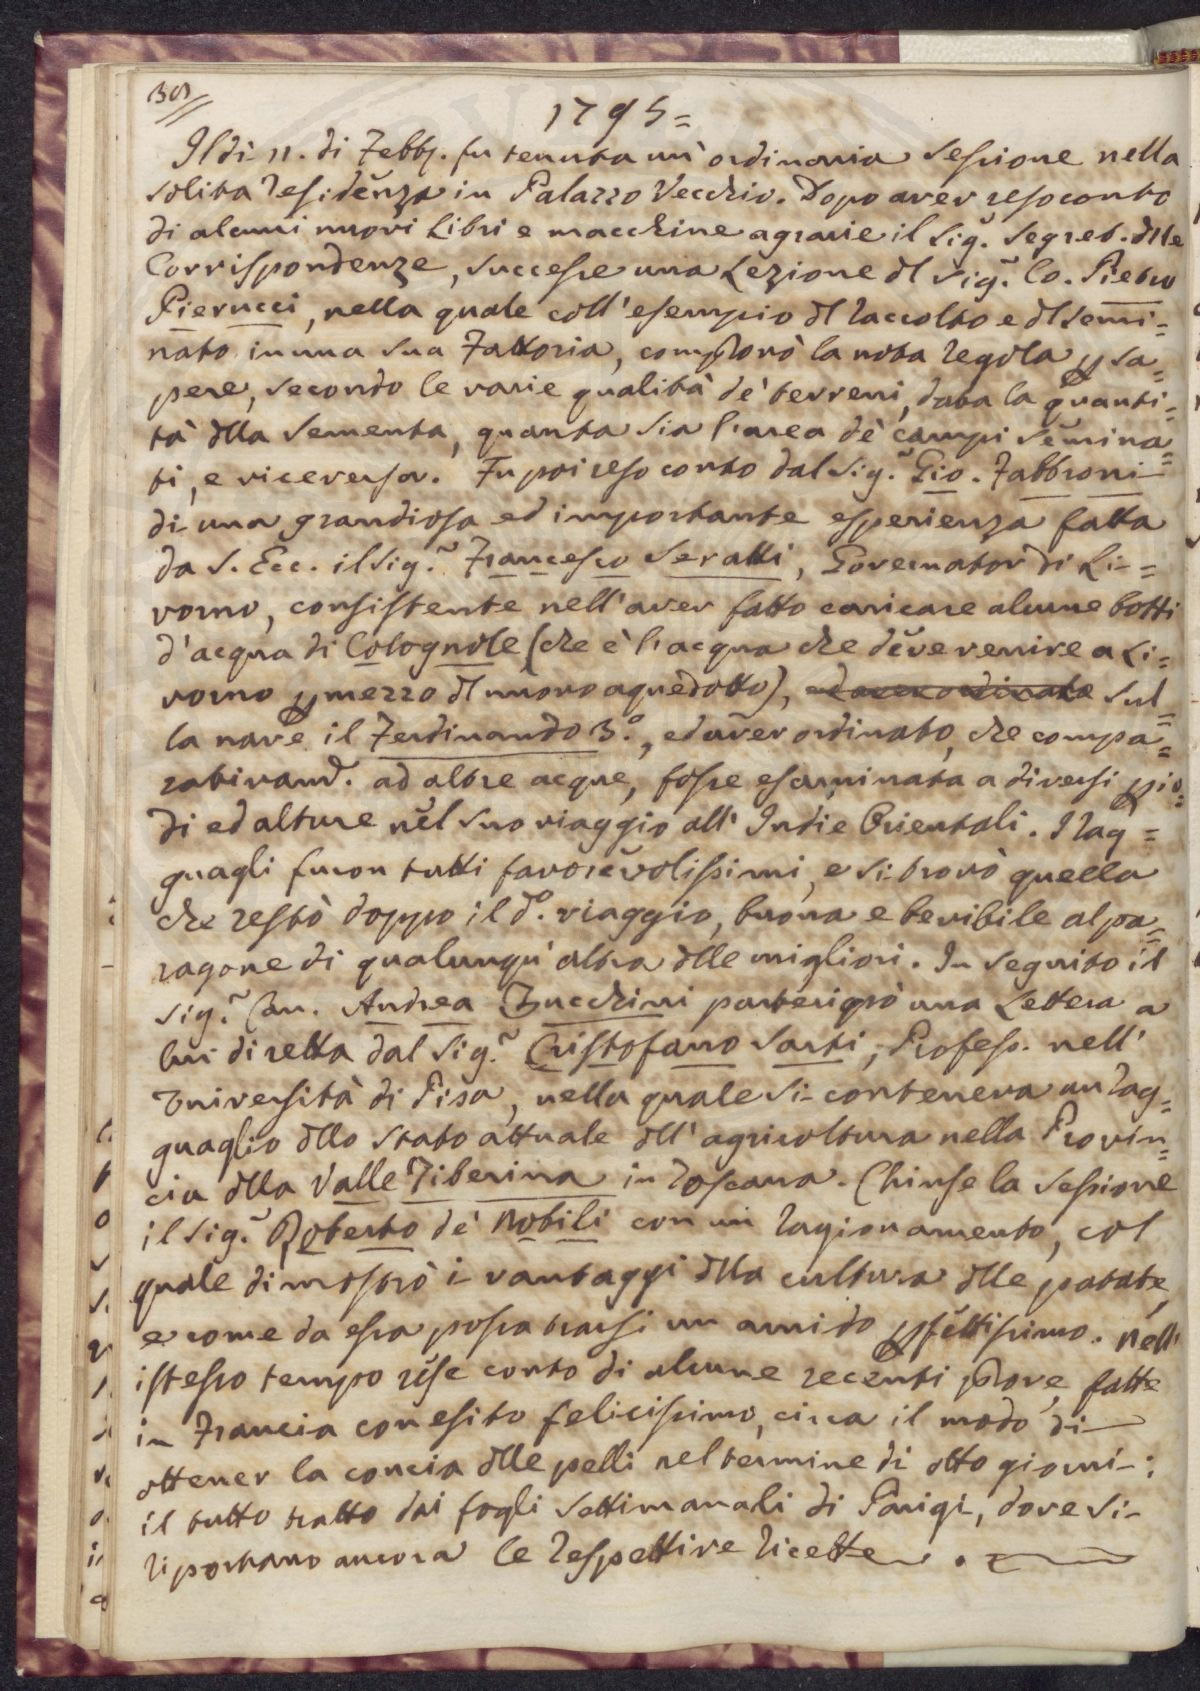 1795=
Il dì 11. di Febb. fu tenuta un' ordinaria Sessione nella
solita Residenza in Palazzo Vecchio. Dopo aver reso conto
di alcuni nuovi Libri e macchine agrarie il Sig. Segret. dlle
Corrispondenze, successe una Lezione dl Sig. Co. Pietro
Pierucci, nella quale coll' esempio dl Raccolto e dl semi=
nato in una sua Fattoria, comprovò la nota Regola p sa=
pere, secondo le varie qualità de' terreni, data la quanti=
tà dlla Sementa, quanta sia l'area de' campi semina=
ti, e viceversa. Fu poi reso conto dal Sig. Gio. Fabbroni
di una grandiosa ed importante esperienza fatta
da S. Ecc. il Sig. Francesco Seratti, Governator di Li=
vorno, consistente nell' aver fatto caricare alcune botti
d'acqua di Colognole (che è l'acqua che deve venire a Li=
vorno p mezzo dl nuovo aquedotto), ed aver ordinato sul=
la nave il Ferdinando 3.°, ed aver ordinato, che compa=
rativam. ad altre acque, fosse esaminata a diversi pio=
di ed alture nel suo viaggio all' Indie Orientali. I Rag=
guagli furon tutti favorevolissimi, e si trovò quella
che restò doppo il d.° viaggio, buona e bevibile al pa=
ragone di qualunqu' altra dlle migliori. In seguito il
Sig. Can. Andrea Zucchini partecipò una Lettera a
lui diretta dal Sig. Cristofano Sarti, Profess. nell'
Università di Pisa, nella quale si conteneva un Rag=
guaglio dllo stato attuale dll' agricoltura nella Provin=
cia dlla Valle Tiberina in Toscana. Chiuse la Sessione
il Sig. Roberto de' Nobili con un Ragionamento, col
quale dimostrò i vantaggi dlla cultura dlle patate,
e come da essa possa trarsi un amido pfettissimo. Nell'
istesso tempo rese conto di alcune recenti prove, fatte
in Francia con esito felicissimo, circa il modo di
ottener la concia dlle pelli nel termine di otto giorni:
il tutto tratto dai fogli settimanali di Parigi, dove si
riportano ancora le Respettive Ricette.